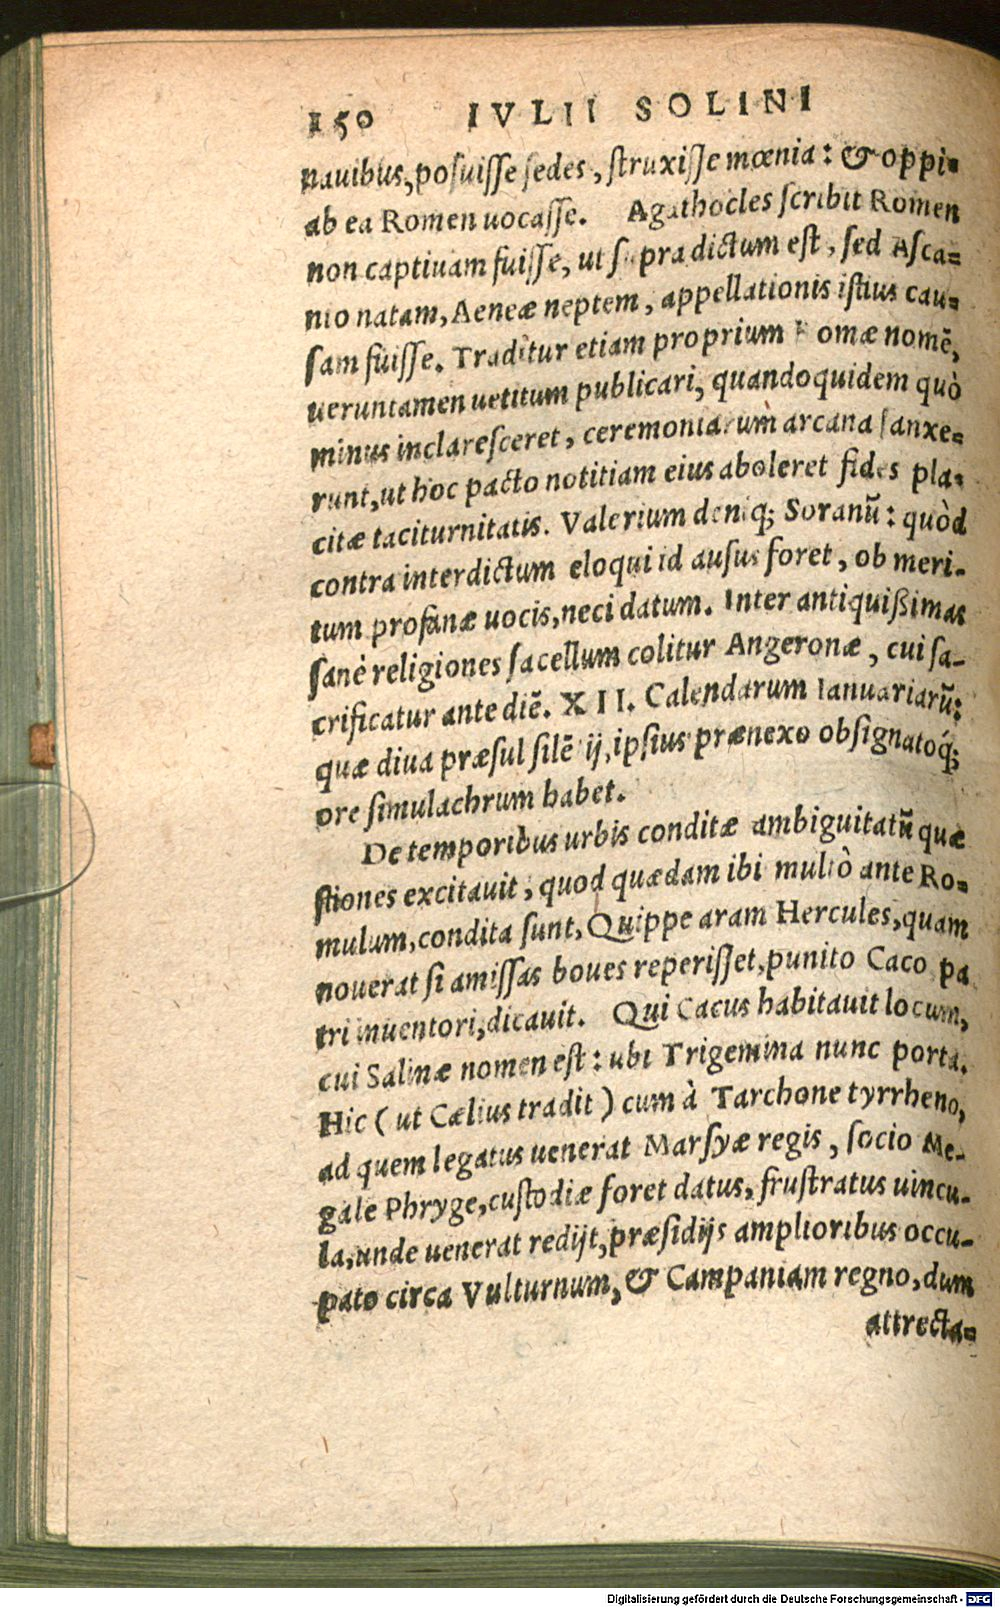 150 IVLII SOLINI
nauibus, posuisse sedes, struxisse mœnia: & oppi-
ab ea Romen uocasse. Agathocles scribit Romen
non captiuam fuisse, ut supra dictum est, sed Asca-
nio natam, Aeneæ neptem, appellationis istius cau-
sam fuisse. Traditur etiam proprium Romæ nomē,
ueruntamen uetitum publicari, quandoquidem quò
minus inclaresceret, ceremoniarum arcana sanxe-
runt, ut hoc pacto notitiam eius aboleret fides pla-
citæ taciturnitatis. Valerium deniq; Soranū: quòd
contra interdictum eloqui id ausus foret, ob meri-
tum profanæ uocis, neci datum. Inter antiquißimas
sanè religiones sacellum colitur Angeronæ, cui sa-
crificatur ante diē. XII. Calendarum Ianuariarū:
quæ diua præsul silē ij, ipsius prænexo obsignatoq́;
ore simulachrum habet.
De temporibus urbis conditæ ambiguitatū quæ
stiones excitauit, quod quædam ibi multò ante Ro-
mulum, condita sunt, Quippe aram Hercules, quam
nouerat si amissas boues reperisset, punito Caco pa
tri inuentori, dicauit. Qui Cacus habitauit locum,
cui Salinæ nomen est: ubi Trigemina nunc porta.
Hic (ut Cælius tradit) cum à Tarchone tyrrheno,
ad quem legatus uenerat Marsyæ regis, socio Me-
gale Phryge, custodiæ foret datus, frustratus uincu-
la, unde uenerat redijt, præsidijs amplioribus occu-
pato circa Vulturnum, & Campaniam regno, dum
attrecta-
Digitalisierung gefördert durch die Deutsche Forschungsgemeinschaft - DFG